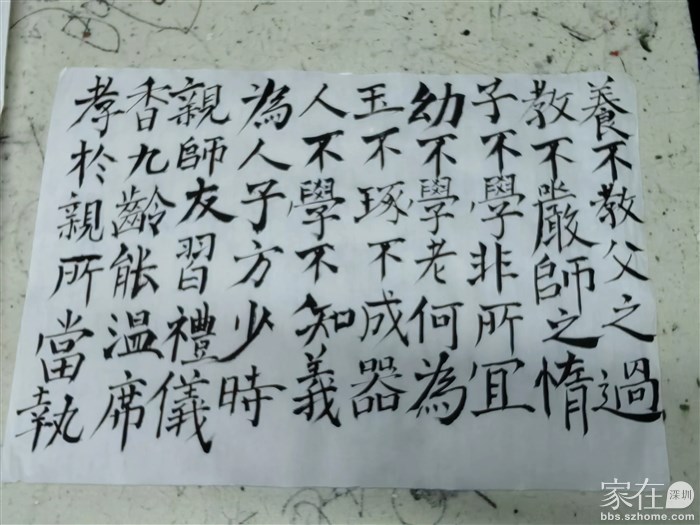 養不教父之過
教不嚴師之惰
子不學非所宜
幼不學老何為
玉不琢不成器
人不學不知義
為人子方少時
親師友習禮儀
香九齡能溫席
孝於親所當執
家在深圳
bbs.szhome.com